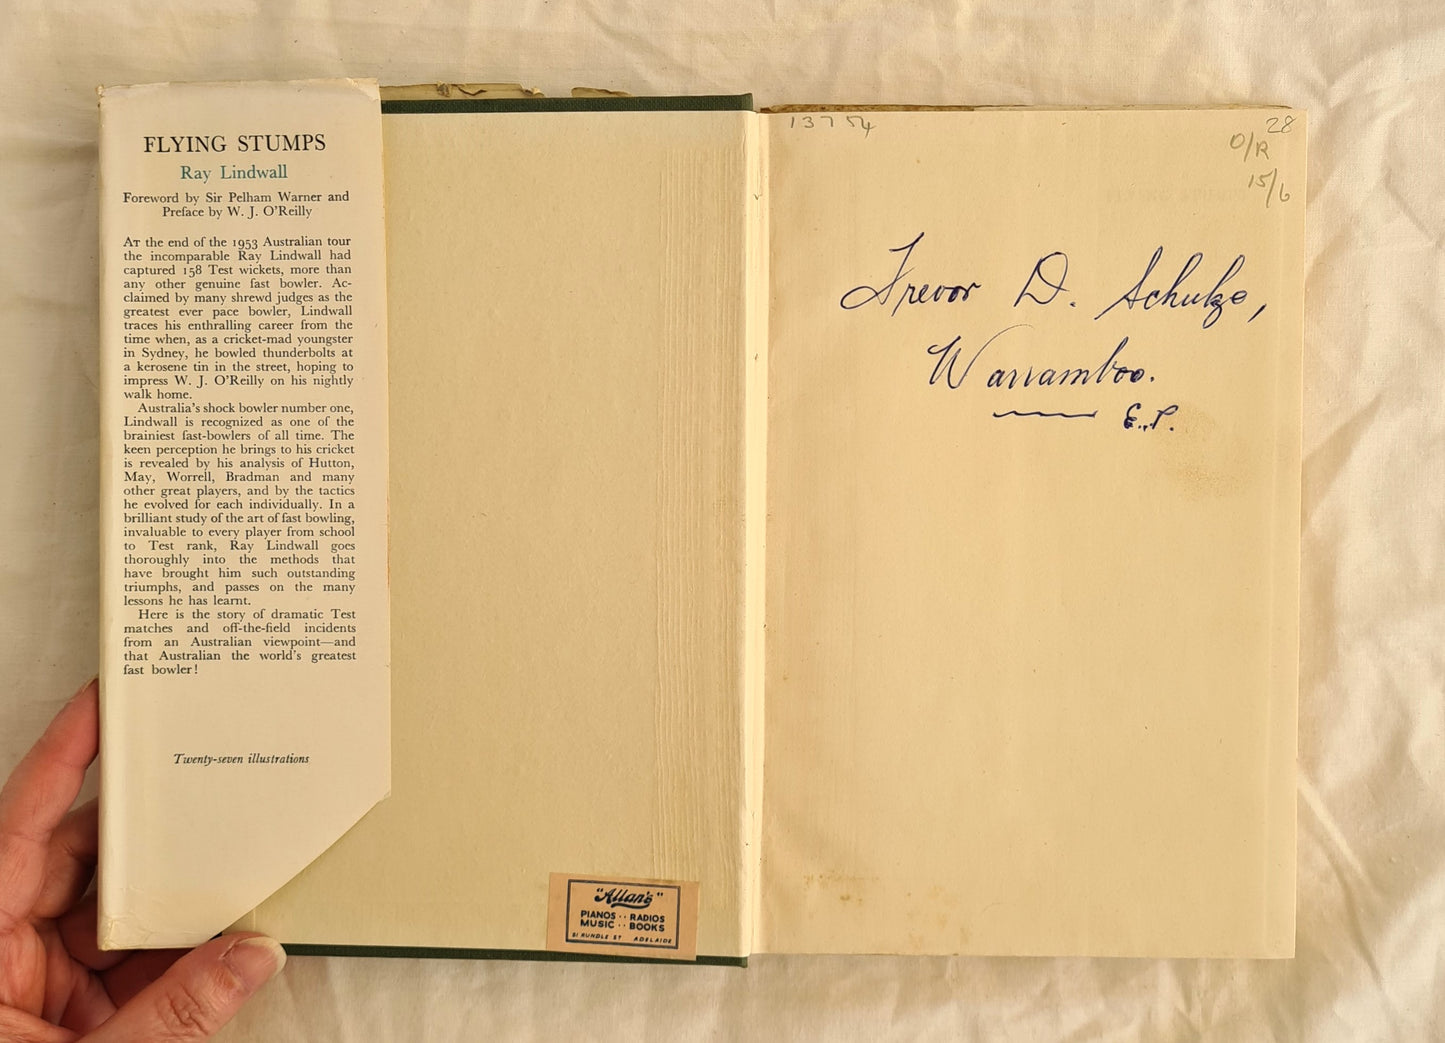 FLYING STUMPS
Ray Lindwall
Foreword by Sir Pelham Warner and
Preface by W. J. O'Reilly
AT the end of the 1953 Australian tour
the incomparable Ray Lindwall had
captured 158 Test wickets, more than
any other genuine fast bowler. Ac-
claimed by many shrewd judges as the
greatest ever pace bowler, Lindwall
traces his enthralling career from the
time when, as a cricket-mad youngster
in Sydney, he bowled thunderbolts at
a kerosene tin in the street, hoping to
impress W. J. O'Reilly on his nightly
walk home.
Australia's shock bowler number one,
Lindwall is recognized as one of the
brainiest fast-bowlers of all time. The
keen perception he brings to his cricket
is revealed by his analysis of Hutton,
May, Worrell, Bradman and many
other great players, and by the tactics
he evolved for each individually. In a
brilliant study of the art of fast bowling,
invaluable to every player from school
to Test rank, Ray Lindwall goes
thoroughly into the methods that
have brought him such outstanding
triumphs, and passes on the many
lessons he has learnt.
Here is the story of dramatic Test
matches and off-the-field incidents
from an Australian viewpoint—and
that Australian the world's greatest
fast bowler!
Twenty-seven illustrations
"Allan's"
PIANOS · · RADIOS
MUSIC · · BOOKS
51 RUNDLE ST ADELAIDE
13754
28
O/R
15/6
Trevor D. Schulze,
Warramboo.
E.P.